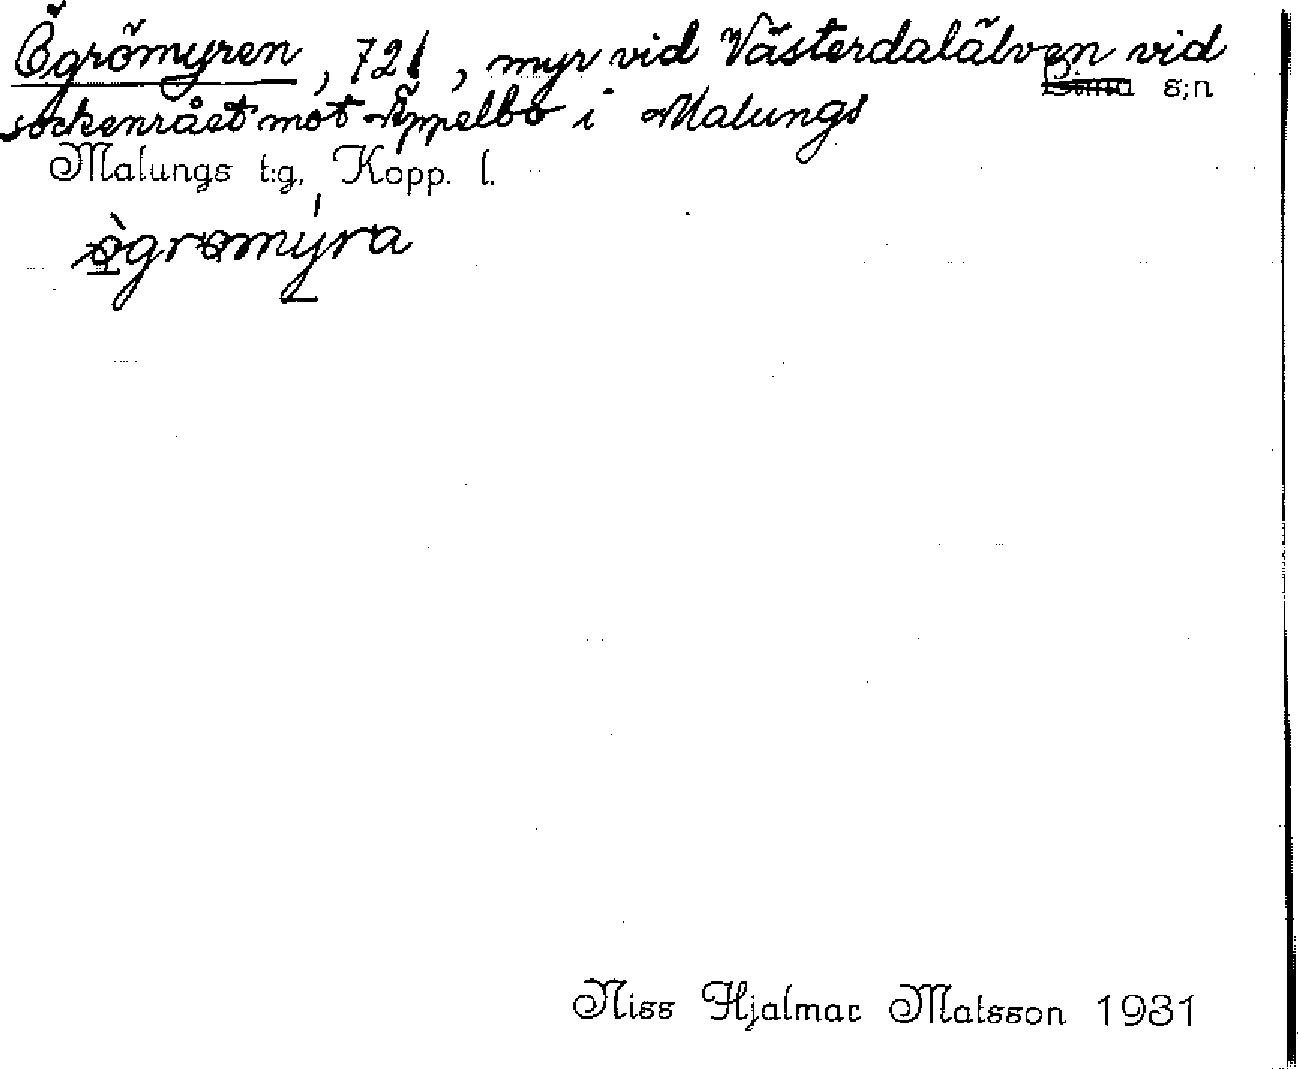 Ögrömyren, 721, myr vid Västerdalälven vid
Lima s:n
sockenrået mot Äppelbo i Malungs
Malungs t:g. Kopp. l.
ògromýra
Niss Hjalmar Matsson 1931